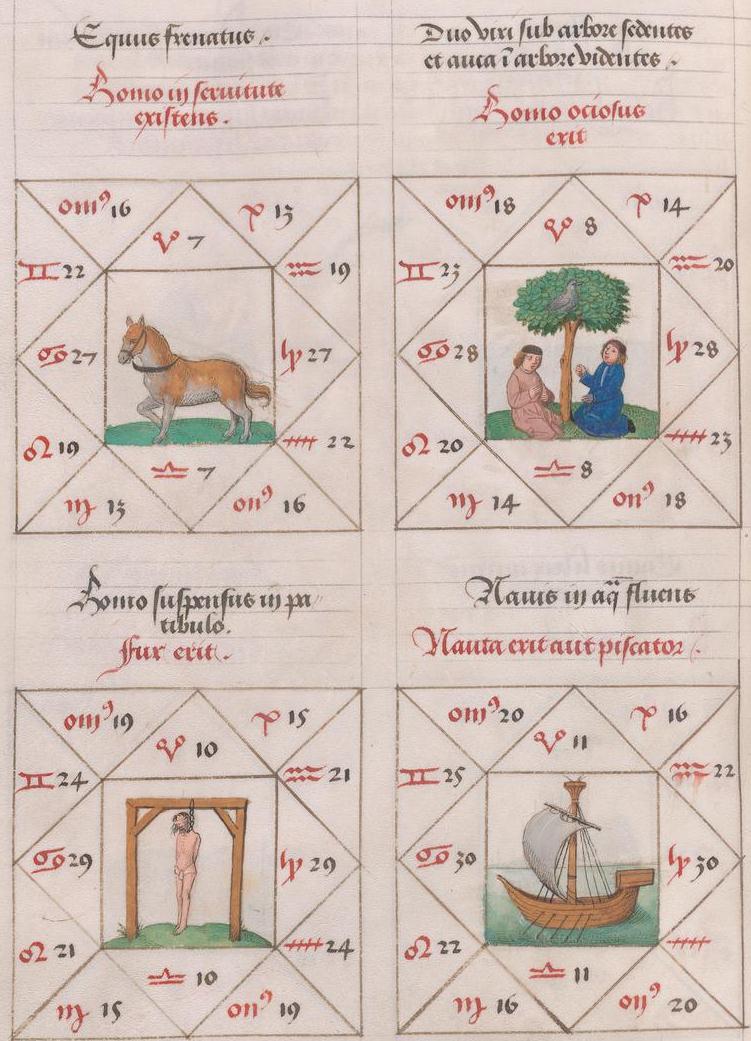 Equus frenatus.
Homo in seruitute
existens.
om⁹ 16
♈ 7
♓ 13
♊ 22
♒ 19
♋ 27
♑ 27
♌ 19
♎ 7
22
♍ 13
on⁹ 16
Duo viri sub arbore sedentes
et auca ī arbore videntes.
Homo ociosus
erit
om⁹ 18
♈ 8
♓ 14
♊ 23
♒ 20
♋ 28
♑ 28
♌ 20
♎ 8
23
♍ 14
on⁹ 18
Homo suspensus in pa
tibulo.
Fur erit.
om⁹ 19
♈ 10
♓ 15
♊ 24
♒ 21
♋ 29
♑ 29
♌ 21
♎ 10
24
♍ 15
on⁹ 19
Nauis in aq̄ fluens
Nauta erit aut piscator.
om⁹ 20
♈ 11
♓ 16
♊ 25
♒ 22
♋ 30
♑ 30
♌ 22
♎ 11
♍ 16
on⁹ 20